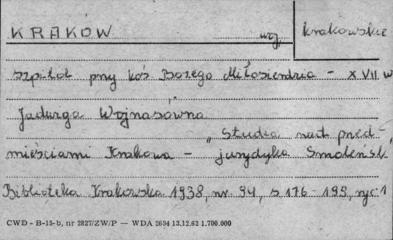 KRAKÓW woj. krakowskie
szpital przy koś Bożego Miłosierdzia - XVII w
Jadwiga Wojnasówna
"Studia nad przed-
mieściami Krakowa - jurydyka Smoleńsk"
Biblioteka Krakowska 1938, nr. 94, s 176-199, ryc 1
CWD - B-15-b, nr 2827/ZW/P — WDA 2634 13.12.62 1.700.000